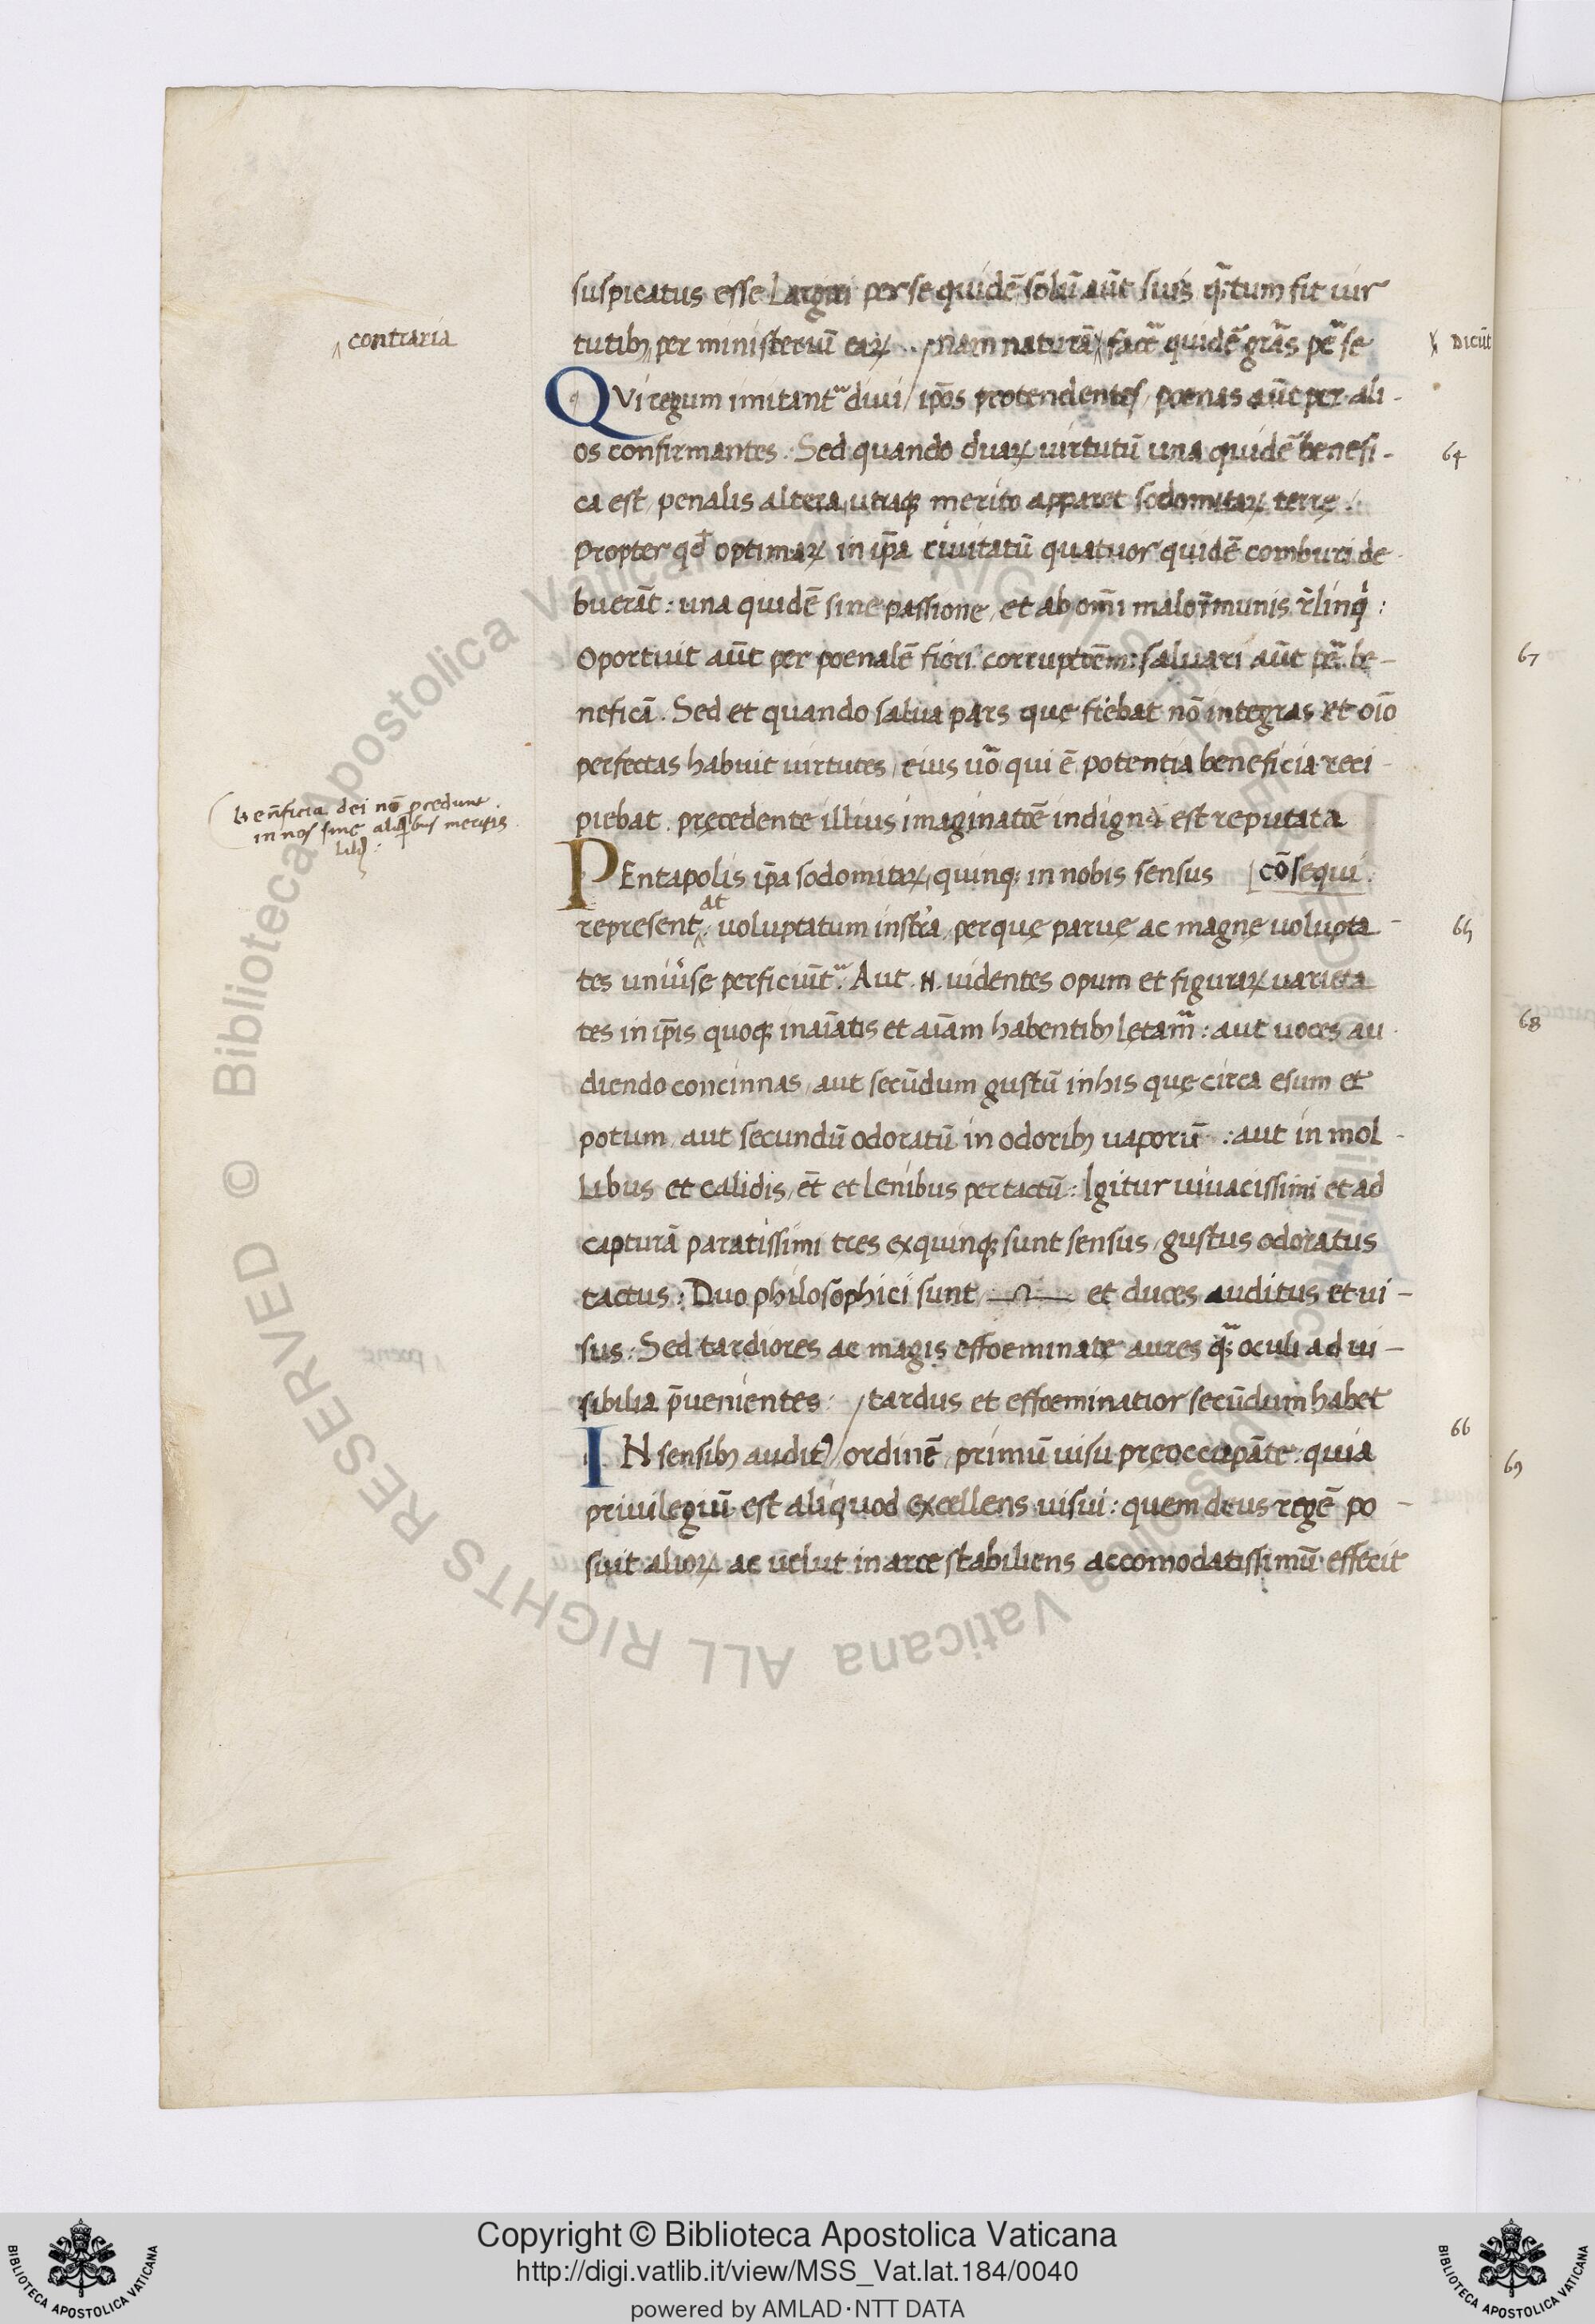 suspicatus esse Largiri per se quidē solū aūt suis q̄tum fit uir
contraria
tutibꝫ per ministeriū eaꝝ .. nam naturā facē quidē grās pē se
Dicūt
QVi regum imitant̄ diui / ip̄os protendentes / poenas aūt per ali-
os confirmantes. Sed quando duaꝝ uirtutū una quidē benefi-
64
ca est / penalis altera, utraqꝫ merito apparet sodomitaꝝ terrę:
Propter qđ optimaꝝ in ip̄a ciuitatū quatuor quidē comburi de
buerāt: una quidē sine passione, et ab om̄i malo īmunis r̄linq̇:
Oportuit aūt per poenalē fieri corruptēm: saluari aūt pēr be-
67
neficā. Sed et quando salua pars quę fiebat nō integras et oīo
perfectas habuit uirtutes, eius uō qui ē potentia beneficia reci-
beñficia dei nō pcedunt
in nos sine aliqbus meritis
piebat. pręcedente illius imaginatōe indigna est reputata
PEntapolis ip̄a sodomitaꝝ, quinqꝫ in nobis sensus [cōsequi.
at
represent. uoluptatum inst̄ra, per quę paruę ac magnę uolupta-
65
tes uniūsę perficiūt̄. Aut .N. uidentes opum et figuraꝝ uarieta
tes in ip̄is quoqꝫ inaīatis et aīam habentibꝫ lętam̄: aut uoces au-
68
diendo concinnas, aut secūdum gustū in his quę circa esum et
potum, aut secundū odoratū in odoribꝫ uaporū: aut in mol-
libus et calidis, et̄ et lenibus per tactū: Igitur uiuacissimi et ad
capturā paratissimi tres ex quinqꝫ sunt sensus, gustus odoratus
tactus: Duo philosophici sunt et duces auditus et ui-
sus: Sed tardiores ac magis effoeminatę aures q̄ oculi ad ui-
sibilia p̄uenientes: / tardus et effoeminatior secūdum habet
66
IN sensibꝫ audit⁹ / ordinē, primū uisu pręoccupāte: quia
69
priuilegiū est aliquod excellens uisui: quem deus regē po-
suit alioꝝ ac uelut in arce stabiliens accomodatissimū effecit
Copyright © Biblioteca Apostolica Vaticana
http://digi.vatlib.it/view/MSS_Vat.lat.184/0040
powered by AMLAD·NTT DATA
BIBLIOTECA APOSTOLICA VATICANA
BIBLIOTECA APOSTOLICA VATICANA
© Biblioteca Apostolica Vaticana ALL RIGHTS RESERVED